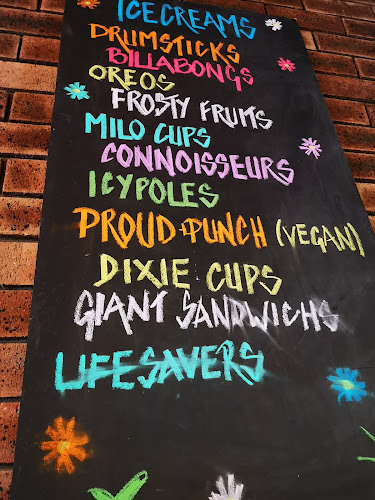 ICECREAMS
DRUMSTICKS
BILLABONGS
OREOS
FROSTY FRUITS
MILO CUPS
CONNOISSEURS
ICYPOLES
PROUD+PUNCH (VEGAN)
DIXIE CUPS
GIANT SANDWICHS
LIFESAVERS